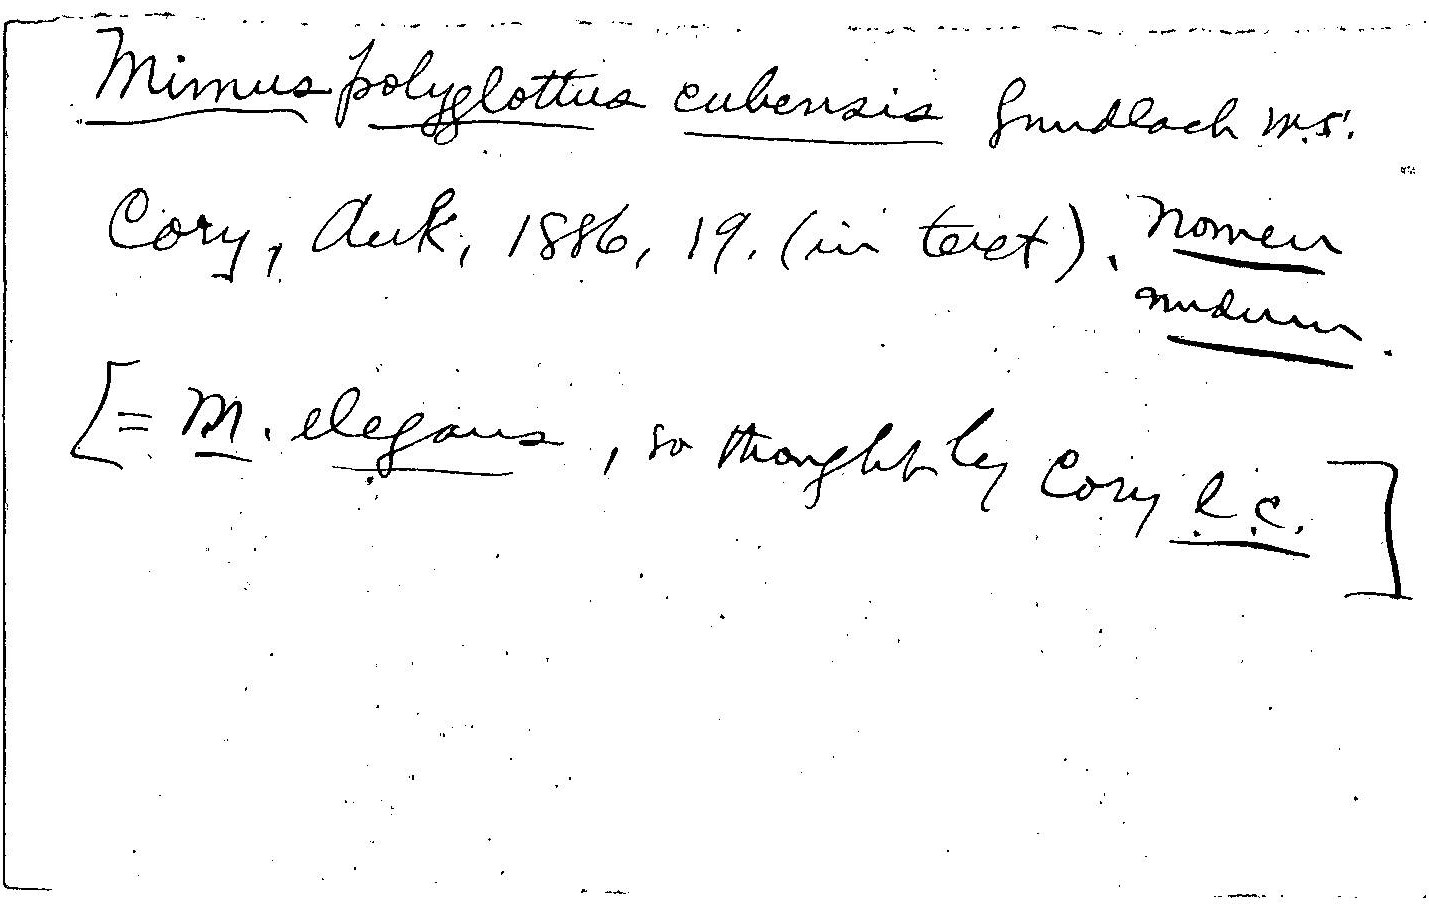 Mimus polyglottus cubensis Gundlach M.S.
Cory, Auk, 1886, 19. (in text). Nomen
nudum.
[= M. elegans, so thought by Cory l.c.]